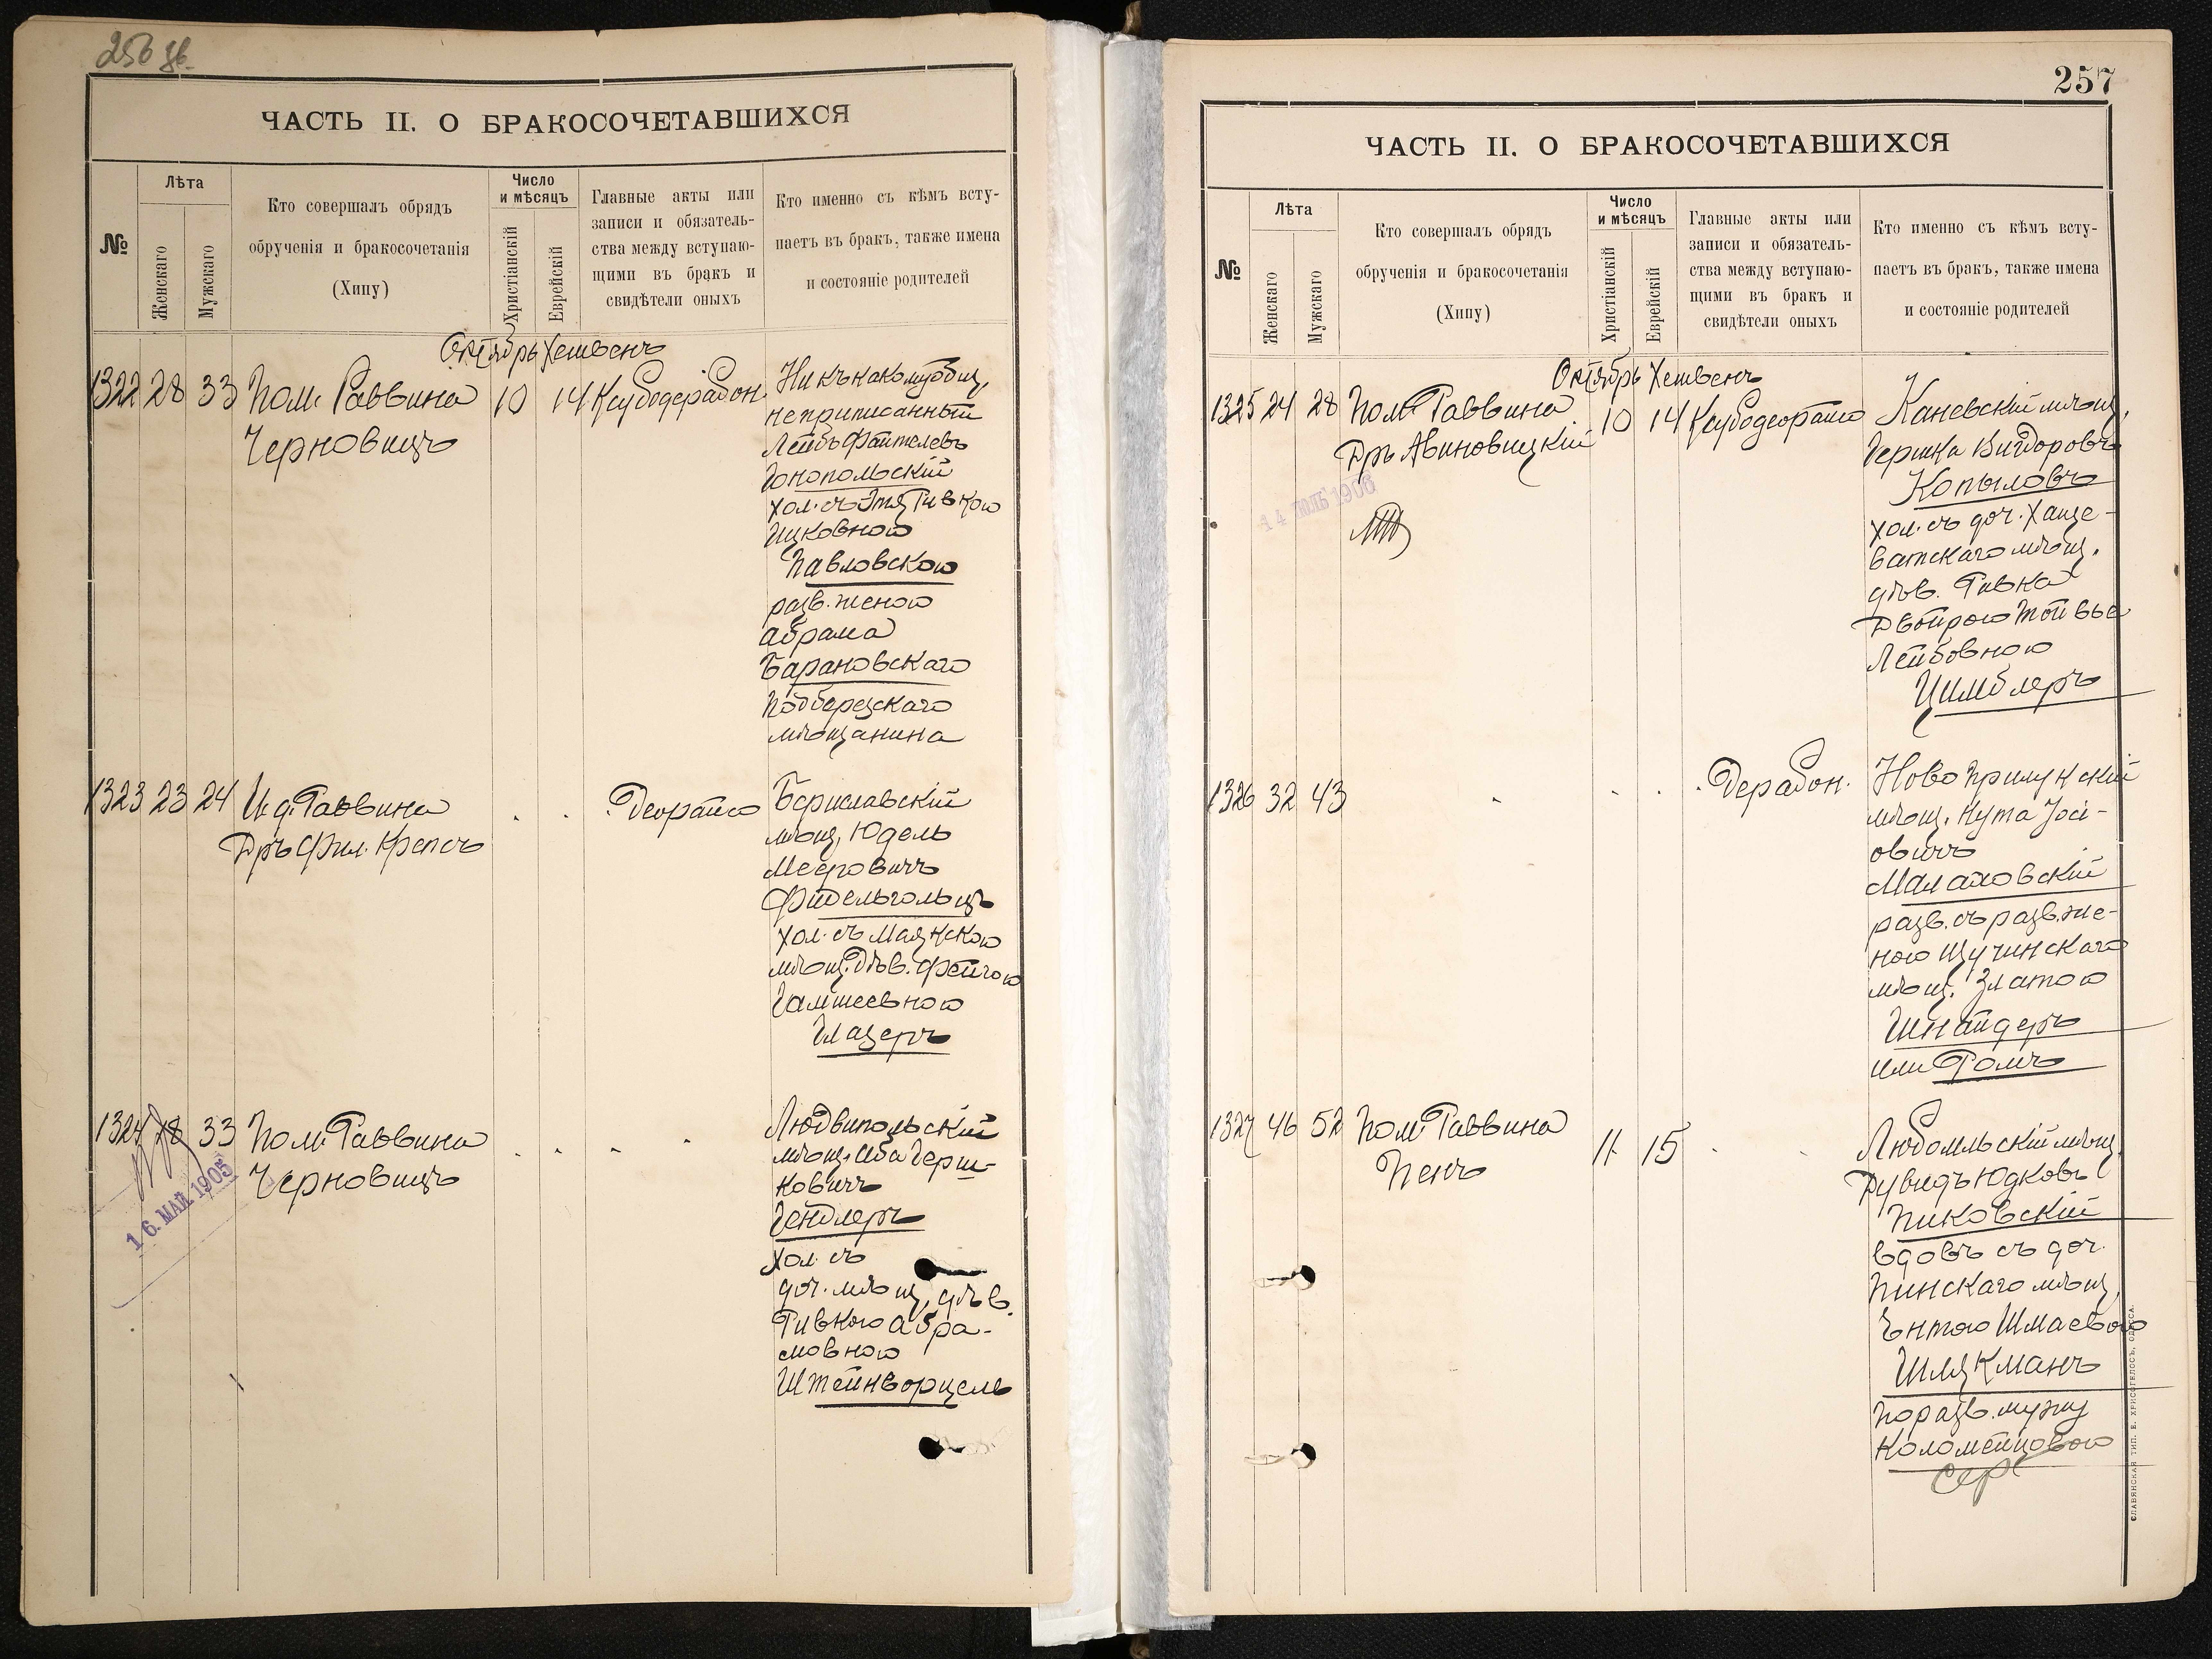 256 об.
ЧАСТЬ II. О БРАКОСОЧЕТАВШИХСЯ
№
Лѣта
Женскаго
Мужскаго
Кто совершалъ обрядъ
обрученія и бракосочетанія
(Хипу)
Число
и мѣсяцъ
Христіанскій
Еврейскій
Главные акты или
записи и обязатель-
ства между вступаю-
щими въ бракъ и
свидѣтели оныхъ
Кто именно съ кѣмъ всту-
паетъ въ бракъ, также имена
и состояніе родителей
Октябрь Хешвенъ
1322 28 33 Пом. Раввина 10 14
Черновицъ
Ни къ какому общ.
неприписанный
Лейбъ Файтелевъ
Гонопольскій
хол. съ Этя Ривкою
Ицковною
Павловскою
разв. женою
Абрама
Барановскаго
Подберезскаго
мѣщанина
1323 23 24 И. д. Раввина
Дръ Фил. Крепсъ
Деорайсо
Бериславскій
мѣщ. Юдель
Мееровичъ
Фидельгольцъ
хол. съ Маякскою
мѣщ. дѣв. Фейгою
Гамшеевною
Глазеръ
1324 18 33 Пом. Раввина
Черновицъ
16. МАЙ. 1905
Людвипольскій
мѣщ. Аба Герш-
ковичъ
Гендлеръ
хол. съ
доч. мѣщ. дѣв.
Ривкою Абра-
мовною
Штейнворцель
257
ЧАСТЬ II. О БРАКОСОЧЕТАВШИХСЯ
№
Лѣта
Женскаго
Мужскаго
Кто совершалъ обрядъ
обрученія и бракосочетанія
(Хипу)
Число
и мѣсяцъ
Христіанскій
Еврейскій
Главные акты или
записи и обязатель-
ства между вступаю-
щими въ бракъ и
свидѣтели оныхъ
Кто именно съ кѣмъ всту-
паетъ въ бракъ, также имена
и состояніе родителей
Октябрь Хешвенъ
1325 24 28 Пом. Раввина 10 14 Ксубодеорайсо
Дръ Авиновицкій
1906
Каневскій мѣщ.
Гершка Вигдоровъ
Копыловъ
хол. съ доч. Хаще-
ватскаго мѣщ.
дѣв. Ривка
Двойрою Тойвье
Лейбовною
Цимблеръ
1326 32 43
Дерабон.
Ново Прилукскій
мѣщ. Нута Іосі-
овичъ
Малаховскій
разв. съ разв. же-
ною Щучинскаго
мѣщ. Златою
Шнайдеръ
или Ромъ
1327 46 52 Пом. Раввина 11 15
Пенъ
Любомльскій мѣщ.
Дувидъ Юдковъ
Пиковскій
вдовъ съ доч.
Пинскаго мѣщ.
Ентою Шмаевою
Шлякманъ
по разв. мужу
Коломейцовою
СЛАВЯНСКАЯ ТИП. Е. ХРИСОГЕЛОСЪ, ОДЕССА.